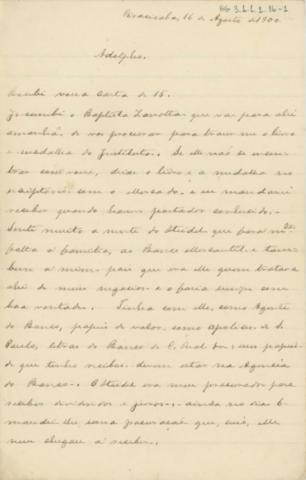 Piracicaba, 16 de Agosto de 1900
Adolpho.
Recebi vossa carta de 15.
Incumbi o Baptista Zanotta que vae para ahi
amanhã, de vos procurar para trazer-me o livro
e medalha do Instituto. Se elle não se
comvosco, deixe o livro e a medalha no
escriptorio sem o e eu mandarei
receber quando houver portador conhecido.
Sinto muito a morte do Steidel que fará
falta á familia, ao Banco Mercantil e tam-
bem a mim, pois que era elle quem tratava
ahi de meus negocios e o fazia sempre com
boa vontade. Tinha com elle, como Agente
do Banco, papeis de valor como apolices de S.
Paulo, letras do Banco de C. Real
de que tenho recibos: devem estar na Agencia
do Banco. O Steidel era meu procurador para
receber dividendos e juros. Ainda no dia 6
mandei-lhe uma procuração que, creio, elle
nem chegou a receber.